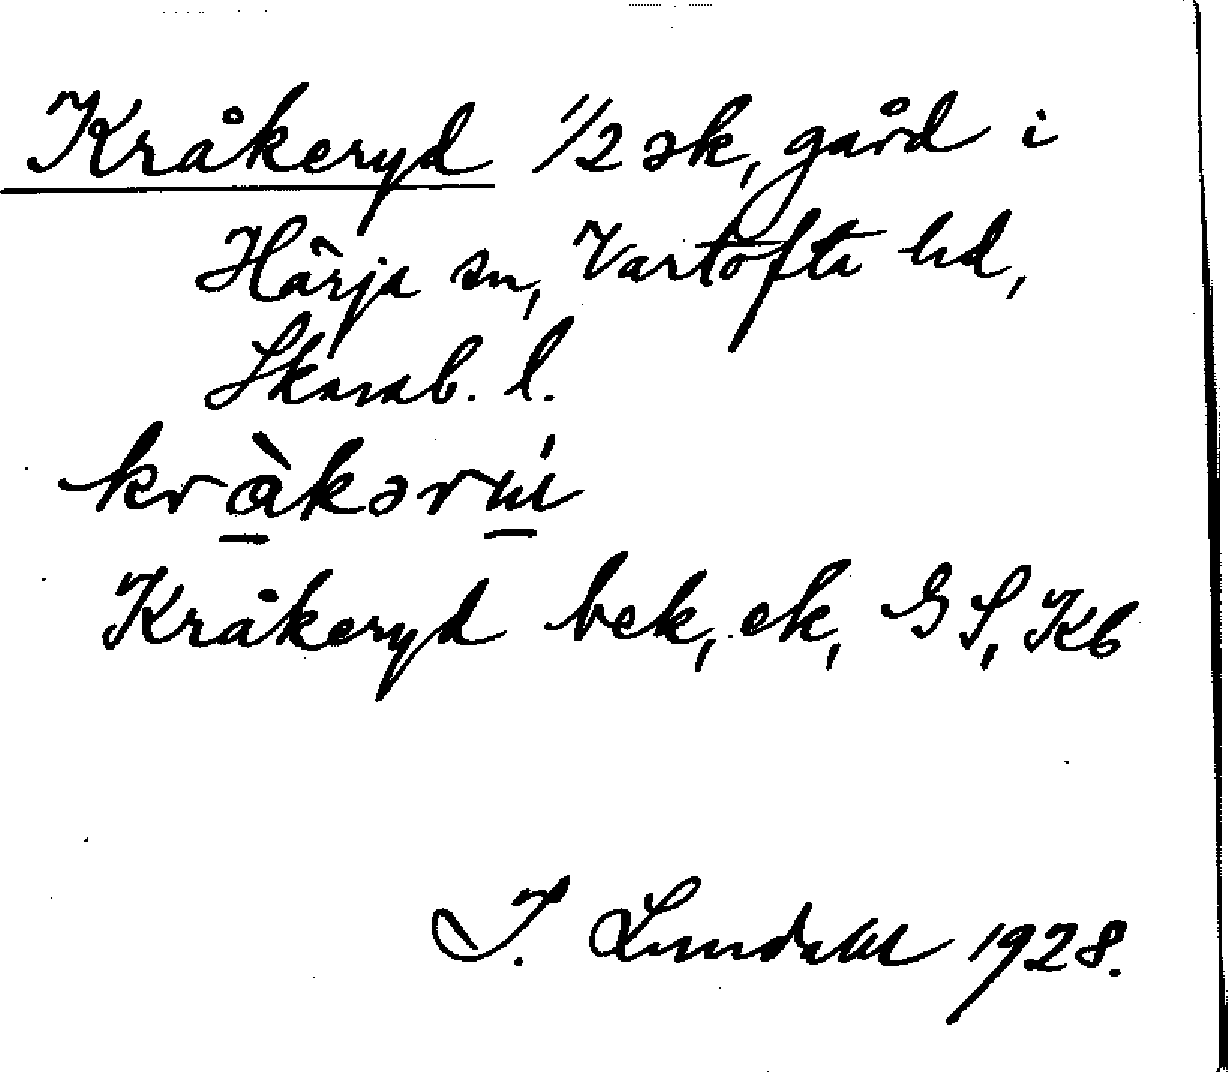 Kråkeryd 1/2 sk, gård i
Härja sn, Vartofta hd,
Skarab. l.
Kråkeryd bek, ek, GS, Kb
I. Lundahl 1928.